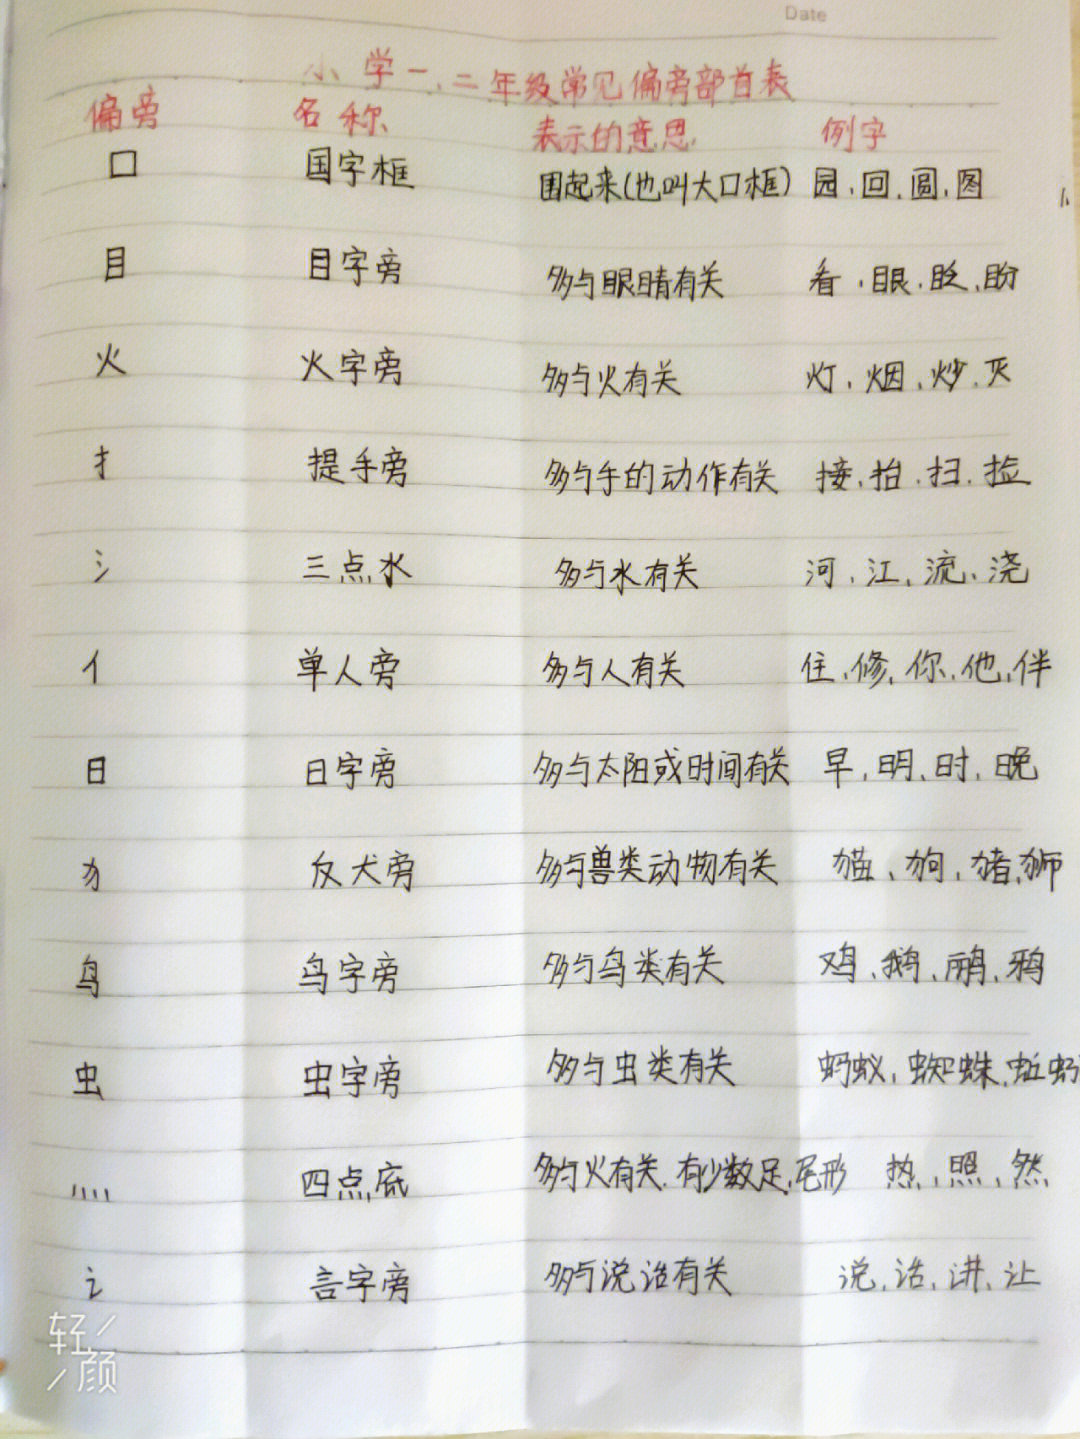 Date
小学一、二年级常见偏旁部首表
偏旁 名称 表示的意思 例字
囗 国字框 围起来(也叫大口框) 园、回、圆、图
目 目字旁 多与眼睛有关 看、眼、眨、盼
火 火字旁 多与火有关 灯、烟、炒、灭
扌 提手旁 多与手的动作有关 接、拍、扫、捡
氵 三点水 多与水有关 河、江、流、浇
亻 单人旁 多与人有关 住、修、你、他、伴
日 日字旁 多与太阳或时间有关 早、明、时、晚
犭 反犬旁 多与兽类动物有关 猫、狗、猪、狮
鸟 鸟字旁 多与鸟类有关 鸡、鹅、鹂、鸦
虫 虫字旁 多与虫类有关 蚂蚁、蜘蛛、蚯蚓
灬 四点底 多与火有关、有少数足、尾形 热、照、然
讠 言字旁 多与说话有关 说、话、讲、让
轻颜